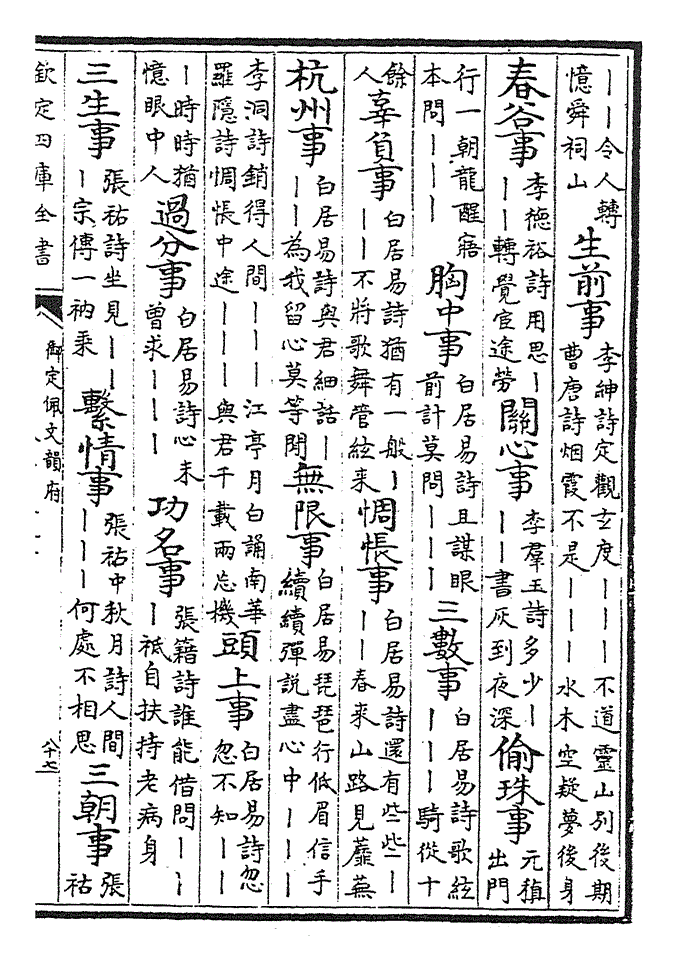 ｜｜令人轉憶舜祠山 生前事 李紳詩定觀玄度｜｜｜不道靈山別後期曹唐詩烟霞不是｜｜｜水木空疑夢後身
春谷事 李德裕詩用思｜｜｜轉覺宦途勞 關心事 李羣玉詩多少｜｜｜書灰到夜深 偷珠事 元稹出門
行一朝龍醒寤本問｜｜｜ 胸中事 白居易詩且謀眼前計莫問｜｜｜ 三數事 白居易詩歌絃｜｜｜騎從十
餘人 辜負事 白居易詩猶有一般｜｜｜不將歌舞管絃來 惆悵事 白居易詩還有些些｜｜｜春來山路見蘼蕪
杭州事 白居易詩與君細話｜｜｜為我留心莫等閒 無限事 白居易琵琶行低眉信手續續彈說盡心中｜｜｜
李洞詩銷得人間｜｜｜江亭月白誦南華羅隱詩惆悵中途｜｜｜與君千載兩忘機 頭上事 白居易詩忽忽不知｜｜
｜時時猶憶眼中人 過分事 白居易詩心未曾求｜｜｜ 功名事 張籍詩誰能借問｜｜｜祗自扶持老病身
三生事 張祐詩坐見｜｜｜宗傳一衲乘 繫情事 張祐中秋月詩人間｜｜｜何處不相思 三朝事 張祐
欽定四庫全書 御定佩文韻府 八十七